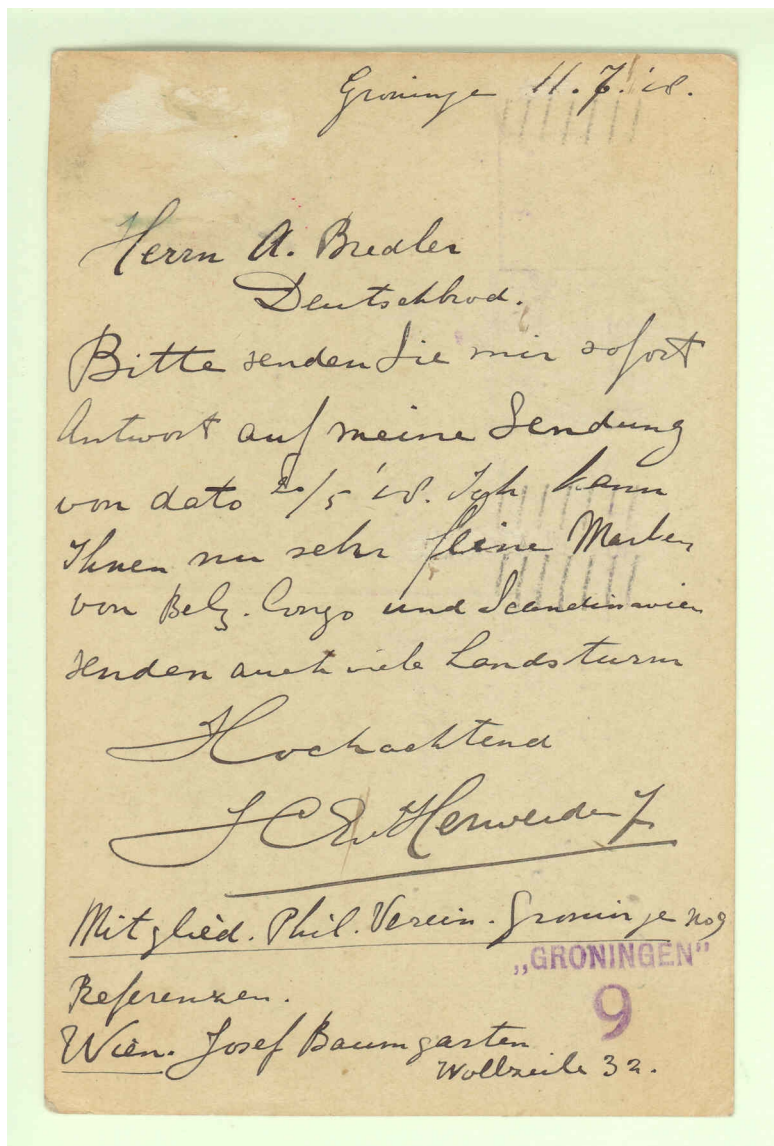 Groningen 11.7.'18.
Herrn A. Bredler
Deutschbrod.
Bitte senden Sie mir sofort
Antwort auf meine Sendung
von dato 20/5 '18. Ich kann
Ihnen nu sehr feine Marken
von Belg. Congo und Scandinavien
senden auch viele Landsturm
Hochachtend
Mitglied. Phil. Verein. Groningen No 9
„GRONINGEN"
9
Referenzen.
Wien. Josef Baumgarten
Wollzeile 32.